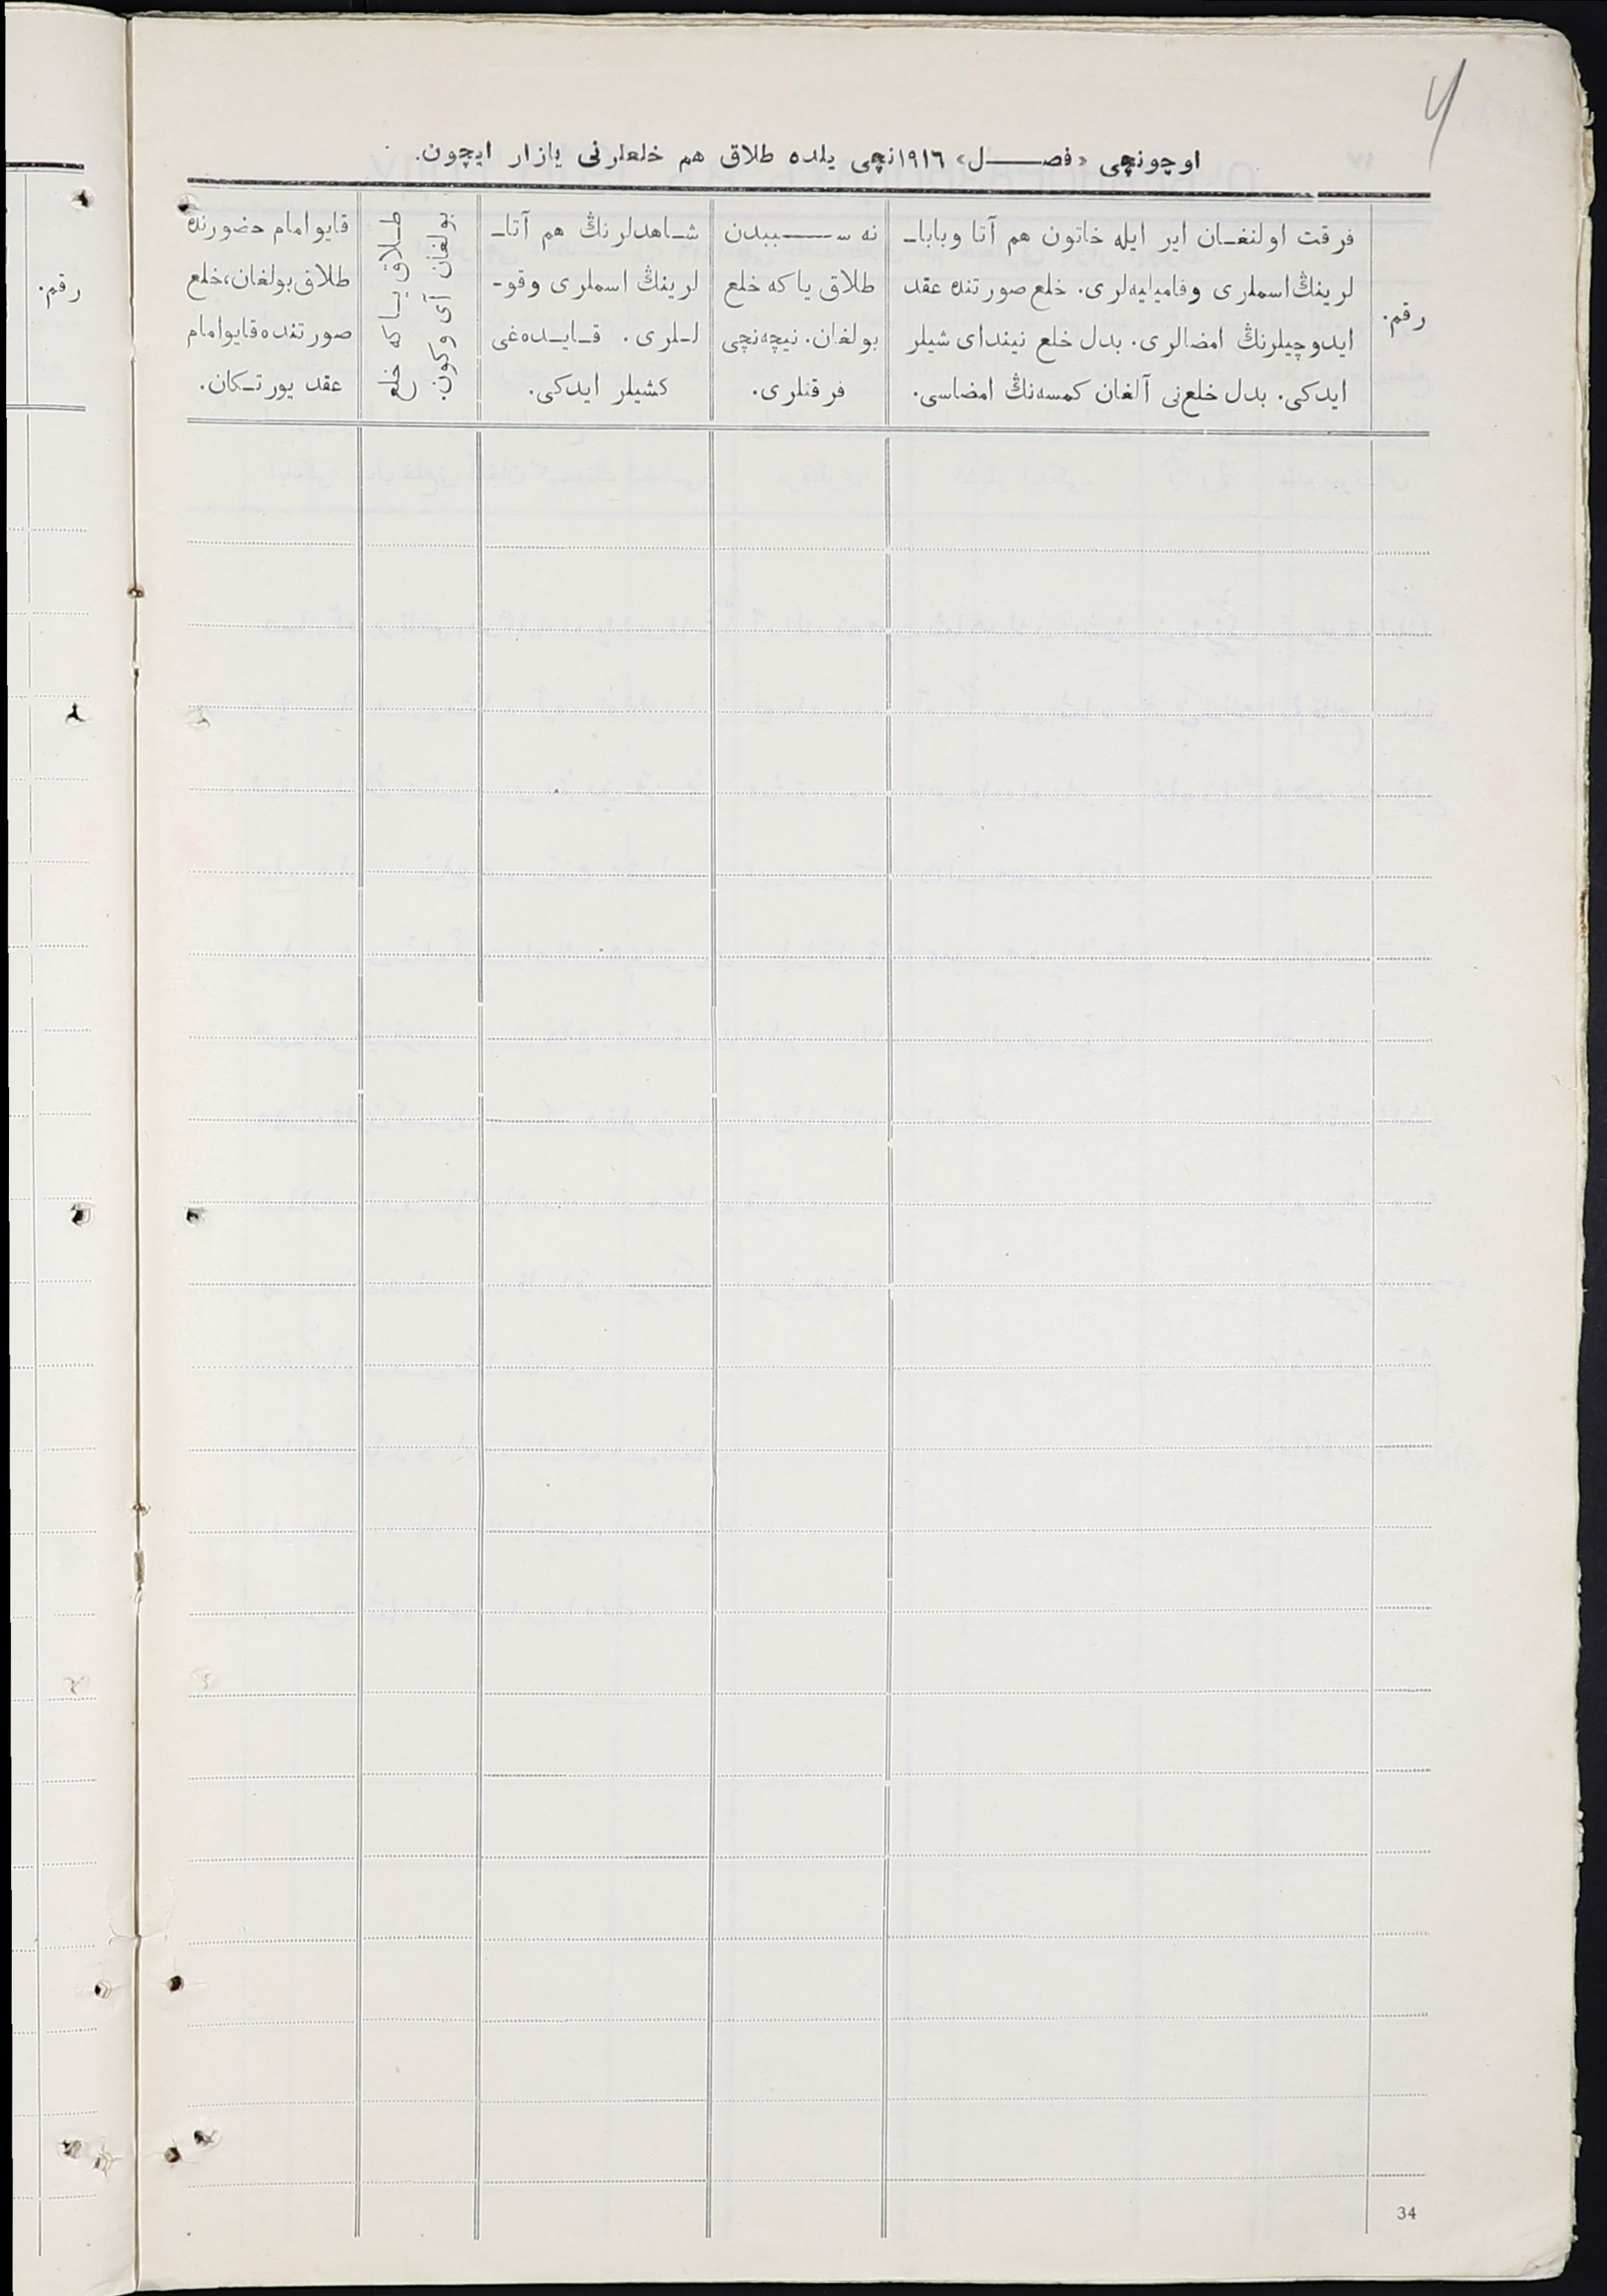 4
اوچونچی «فصـــل» ١٩١٦نچی یلده طلاق هم خلعلرنی یازار ایچون.
رقم.
فرقت اولنغـان ایر ایله خاتون هم آتا وبابا‌ـ
لرینڭ اسملری وفامیلیه‌لری. خلع صورتنده عقد
ایدوچیلرنڭ امضالری. بدل خلع نیندای شیلر
ایدکی. بدل خلع‌نی آلغان کمسه‌نڭ امضاسی.
نه ســـببدن
طلاق یاکه خلع
بولغان. نیچه‌نچی
فرقتلری.
شـاهدلرنڭ هم آتا‌ـ
لرینڭ اسملری وقو‌ـ
لـلری. قـایـده‌غی
کشیلر ایدکی.
طـلاق یـاکه خلع
بولغان آی وکون.
قایو امام حضورنده
طلاق بولغان، خلع
صورتنده قایو امام
عقد یورتـکان.
رقم.
34